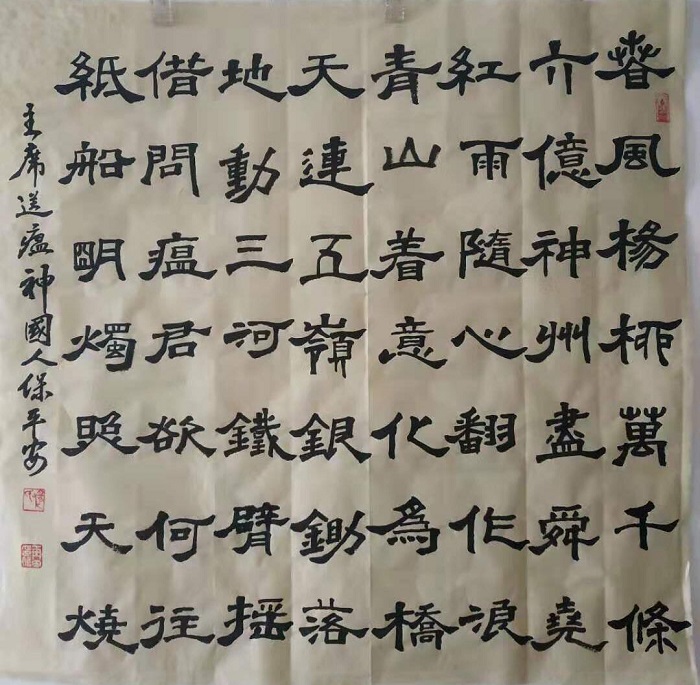 春風楊柳萬千條
六億神州盡舜堯
紅雨隨心翻作浪
青山着意化為橋
天連五嶺銀鋤落
地動三河鐵臂搖
借問瘟君欲何往
紙船明燭照天燒
主席送瘟神國人保平安